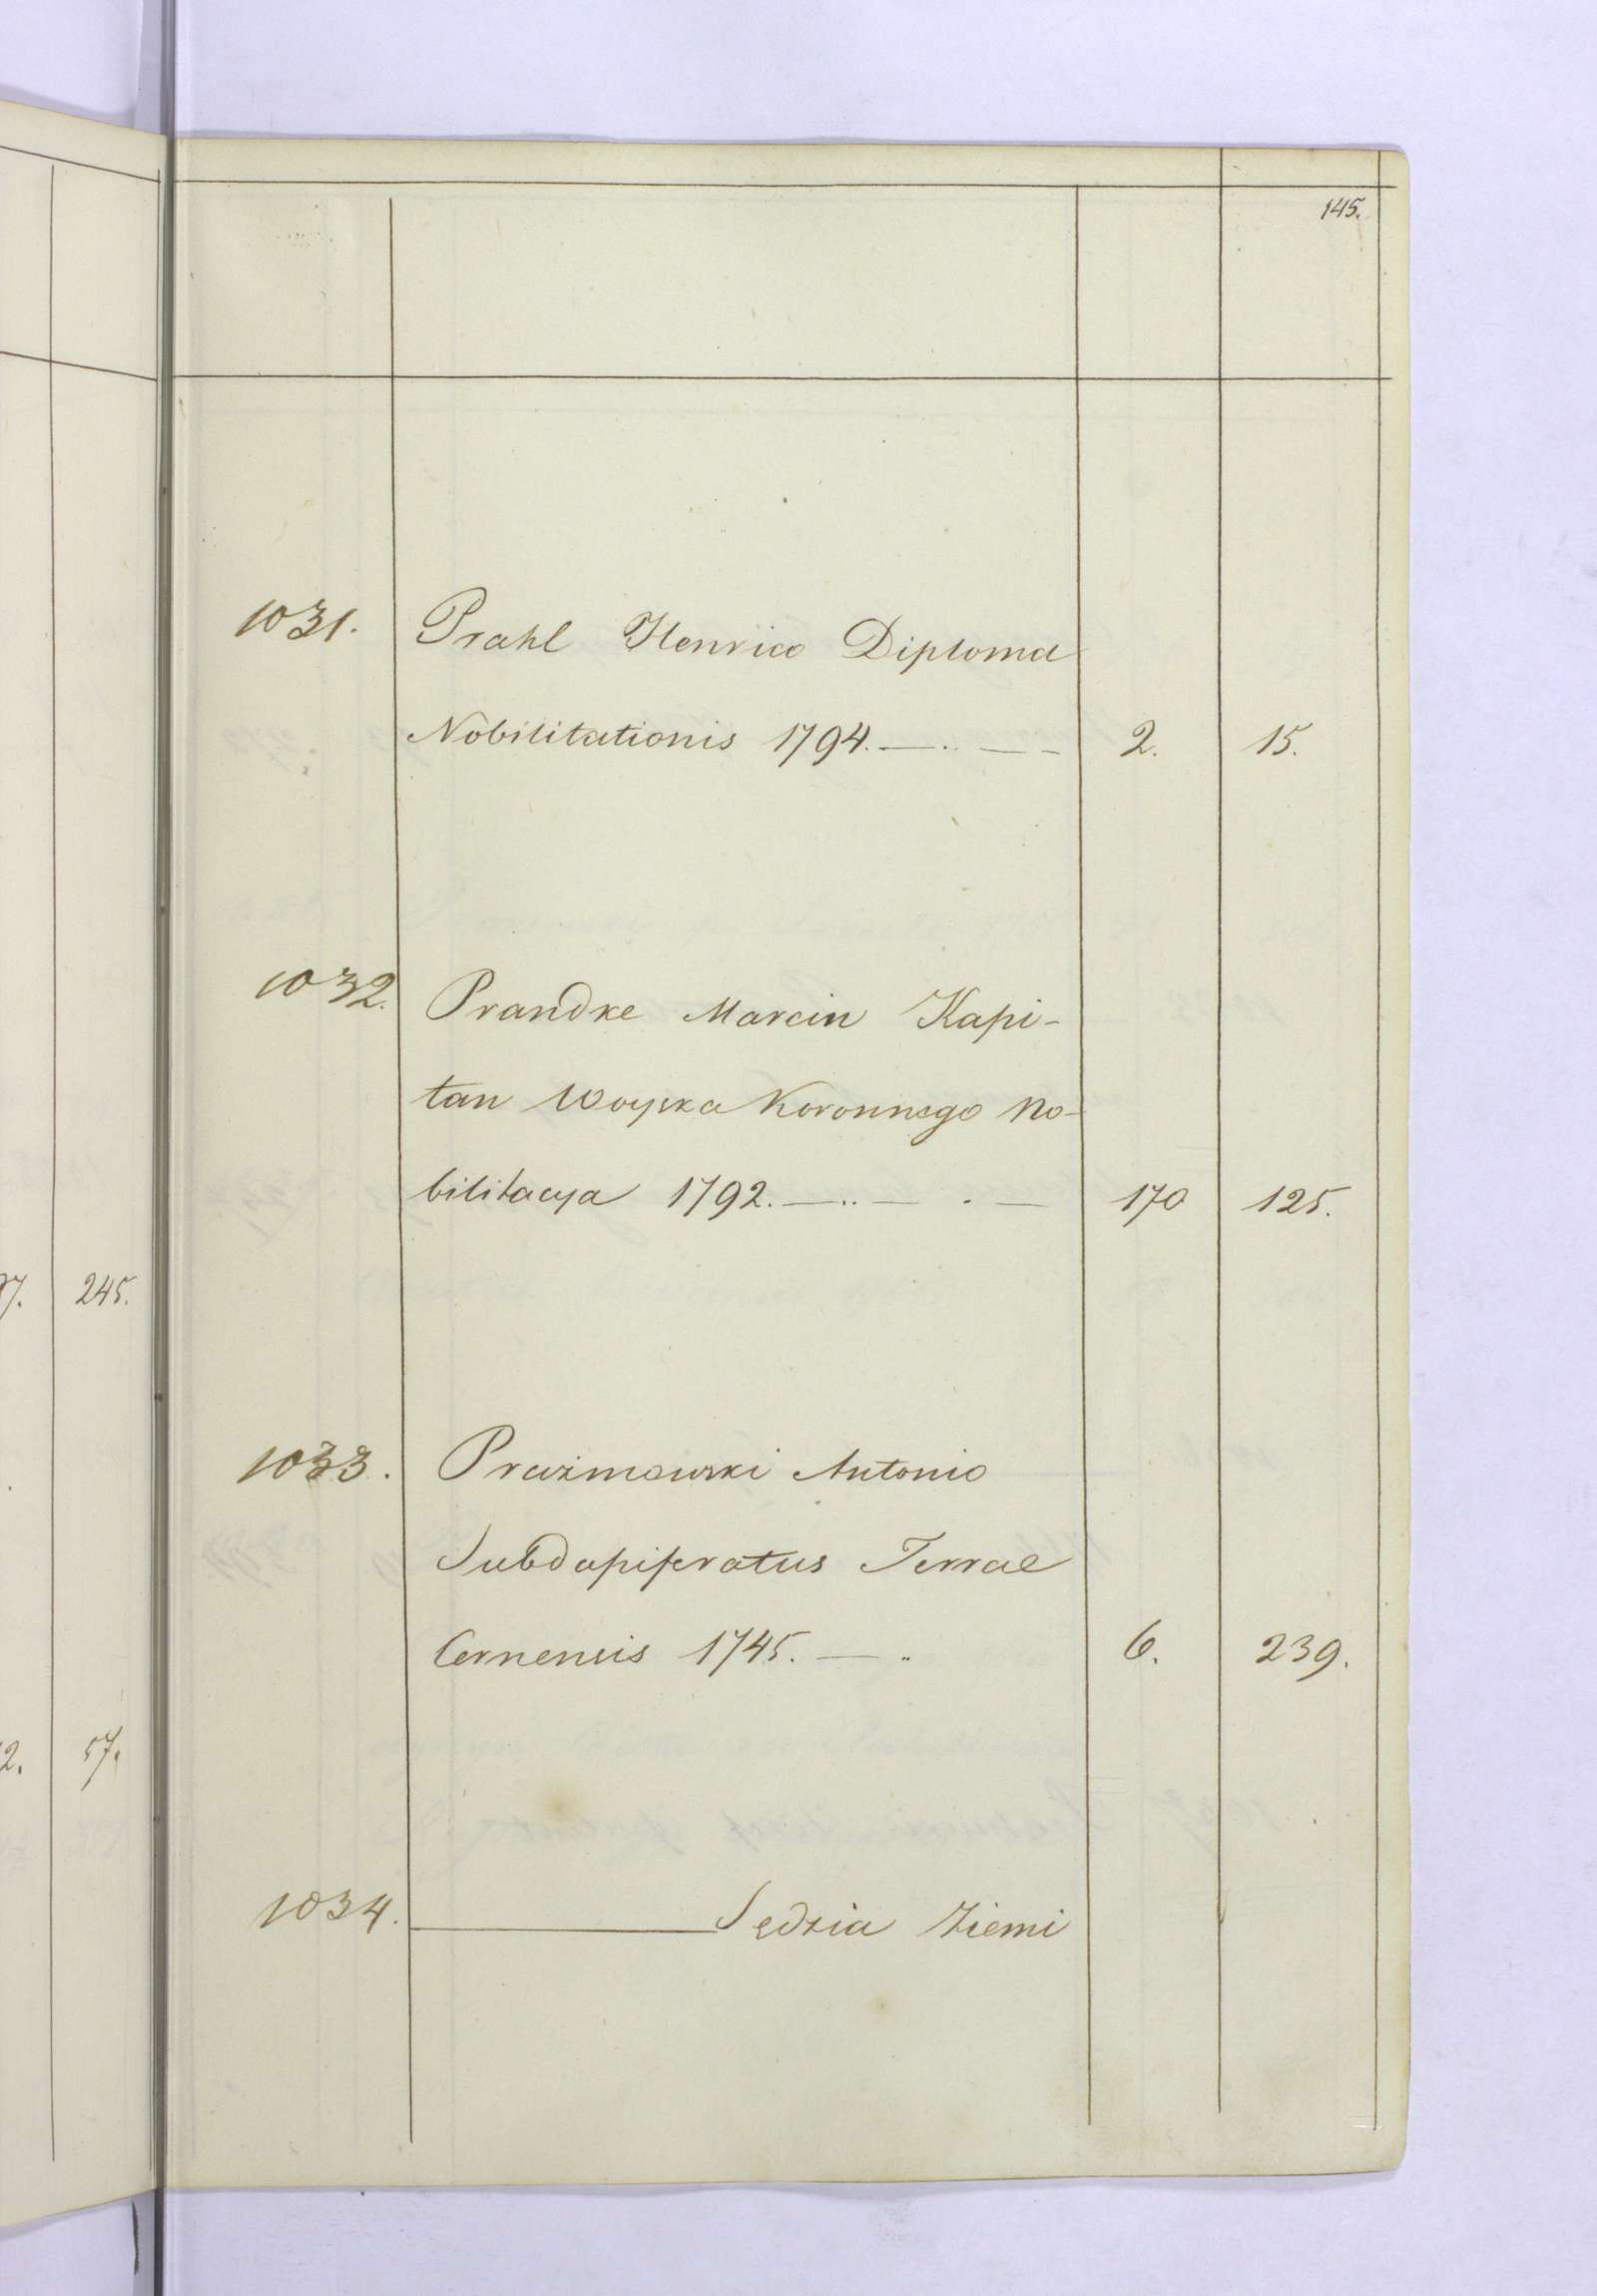 145.
1031. Prahl Henrico Diploma
Nobilitationis 1794. — .. — - 2. 15.
1032. Prandke Marcin Kapi-
tan Woyska Koronnego No-
bilitacya 1792. — .. — . — 170 125.
7. 245.
1033. Prażmowski Antonio
Subdapiferatus Terrae
Cernensis 1745. — .. 6. 239.
2. 57.
1034. ——— Sędzia Ziemi